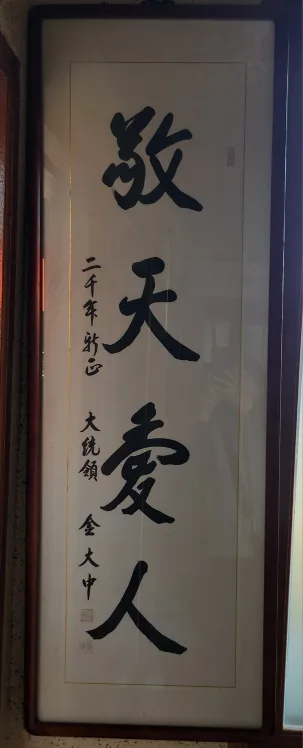 敬天愛人
二千年新正 大統領 金大中